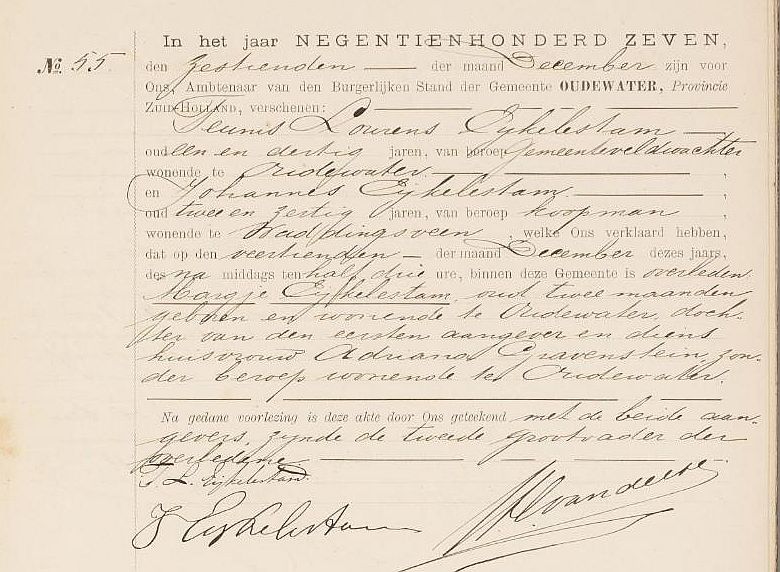 In het jaar NEGENTIENHONDERD ZEVEN,
No. 55.
den zestienden — der maand December zijn voor
Ons, Ambtenaar van den Burgerlijken Stand der Gemeente OUDEWATER, Provincie
ZUID-HOLLAND, verschenen:
Teunis Lourens Eijkelestam —
oud een en dertig jaren, van beroep Gemeenteveldwachter
wonende te Oudewater — ,
en Johannes Eijkelestam — ,
oud twee en zestig jaren, van beroep koopman ,
wonende te Waddingsveen , welke Ons verklaard hebben,
dat op den veertienden — der maand December dezes jaars,
des na middags ten half drie ure, binnen deze Gemeente is overleden
Margje Eijkelestam, oud twee maanden
geboren en wonende te Oudewater, doch-
ter van den eersten aangever en diens
huisvrouw Adriana Gravenstein, zon-
der beroep wonende te Oudewater.
Na gedane voorlezing is deze akte door Ons geteekend met de beide aan-
gevers, zijnde de tweede grootvader der
overledene —
T. L. Eijkelestam.
J Eijkelestam